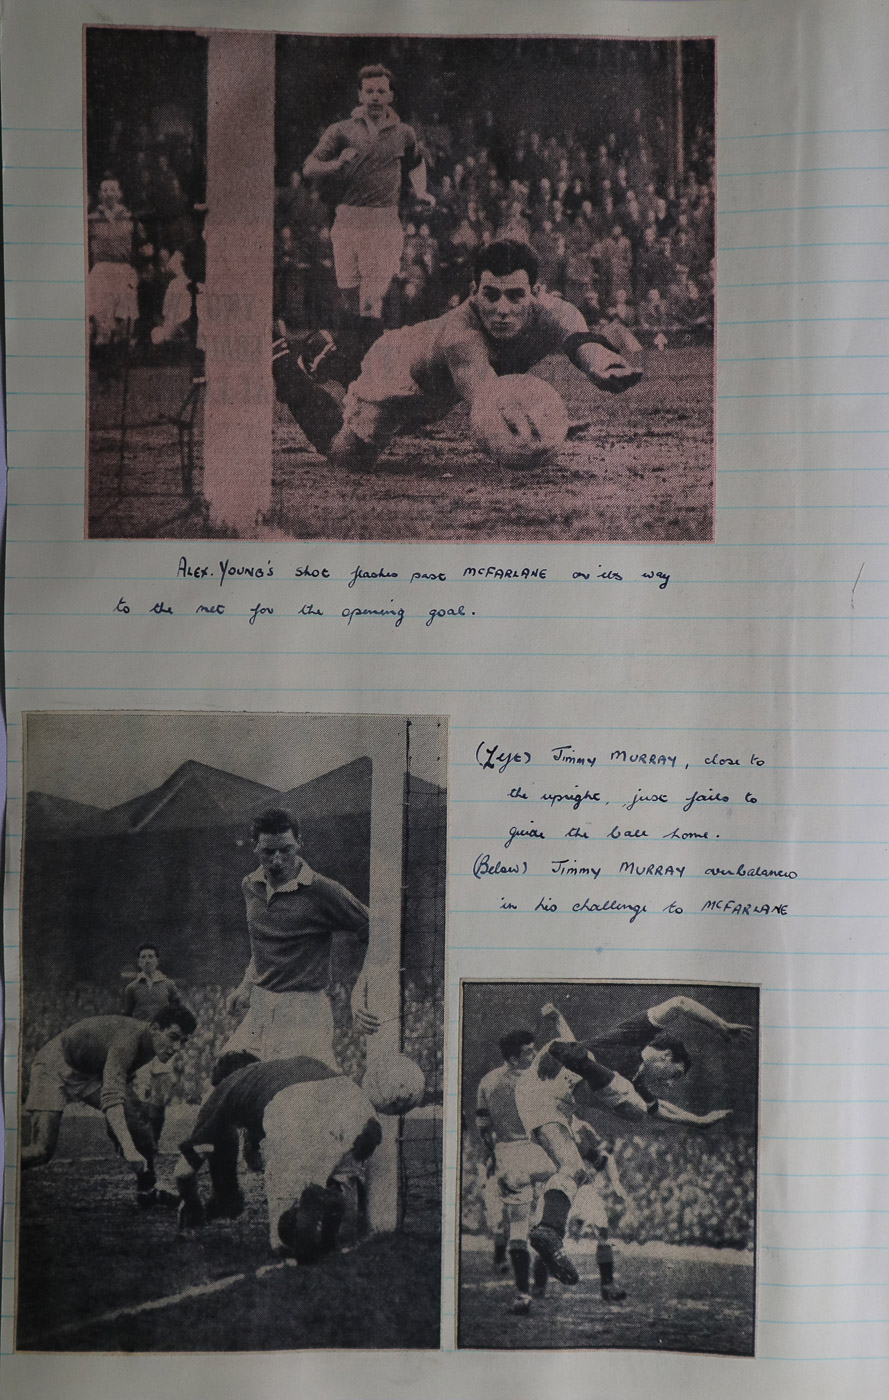 ALEX. YOUNG'S shot flashes past MCFARLANE on its way
to the net for the opening goal.
(Left) Jimmy MURRAY, close to
the upright, just fails to
guide the ball home.
(Below) Jimmy MURRAY overbalances
in his challenge to MCFARLANE